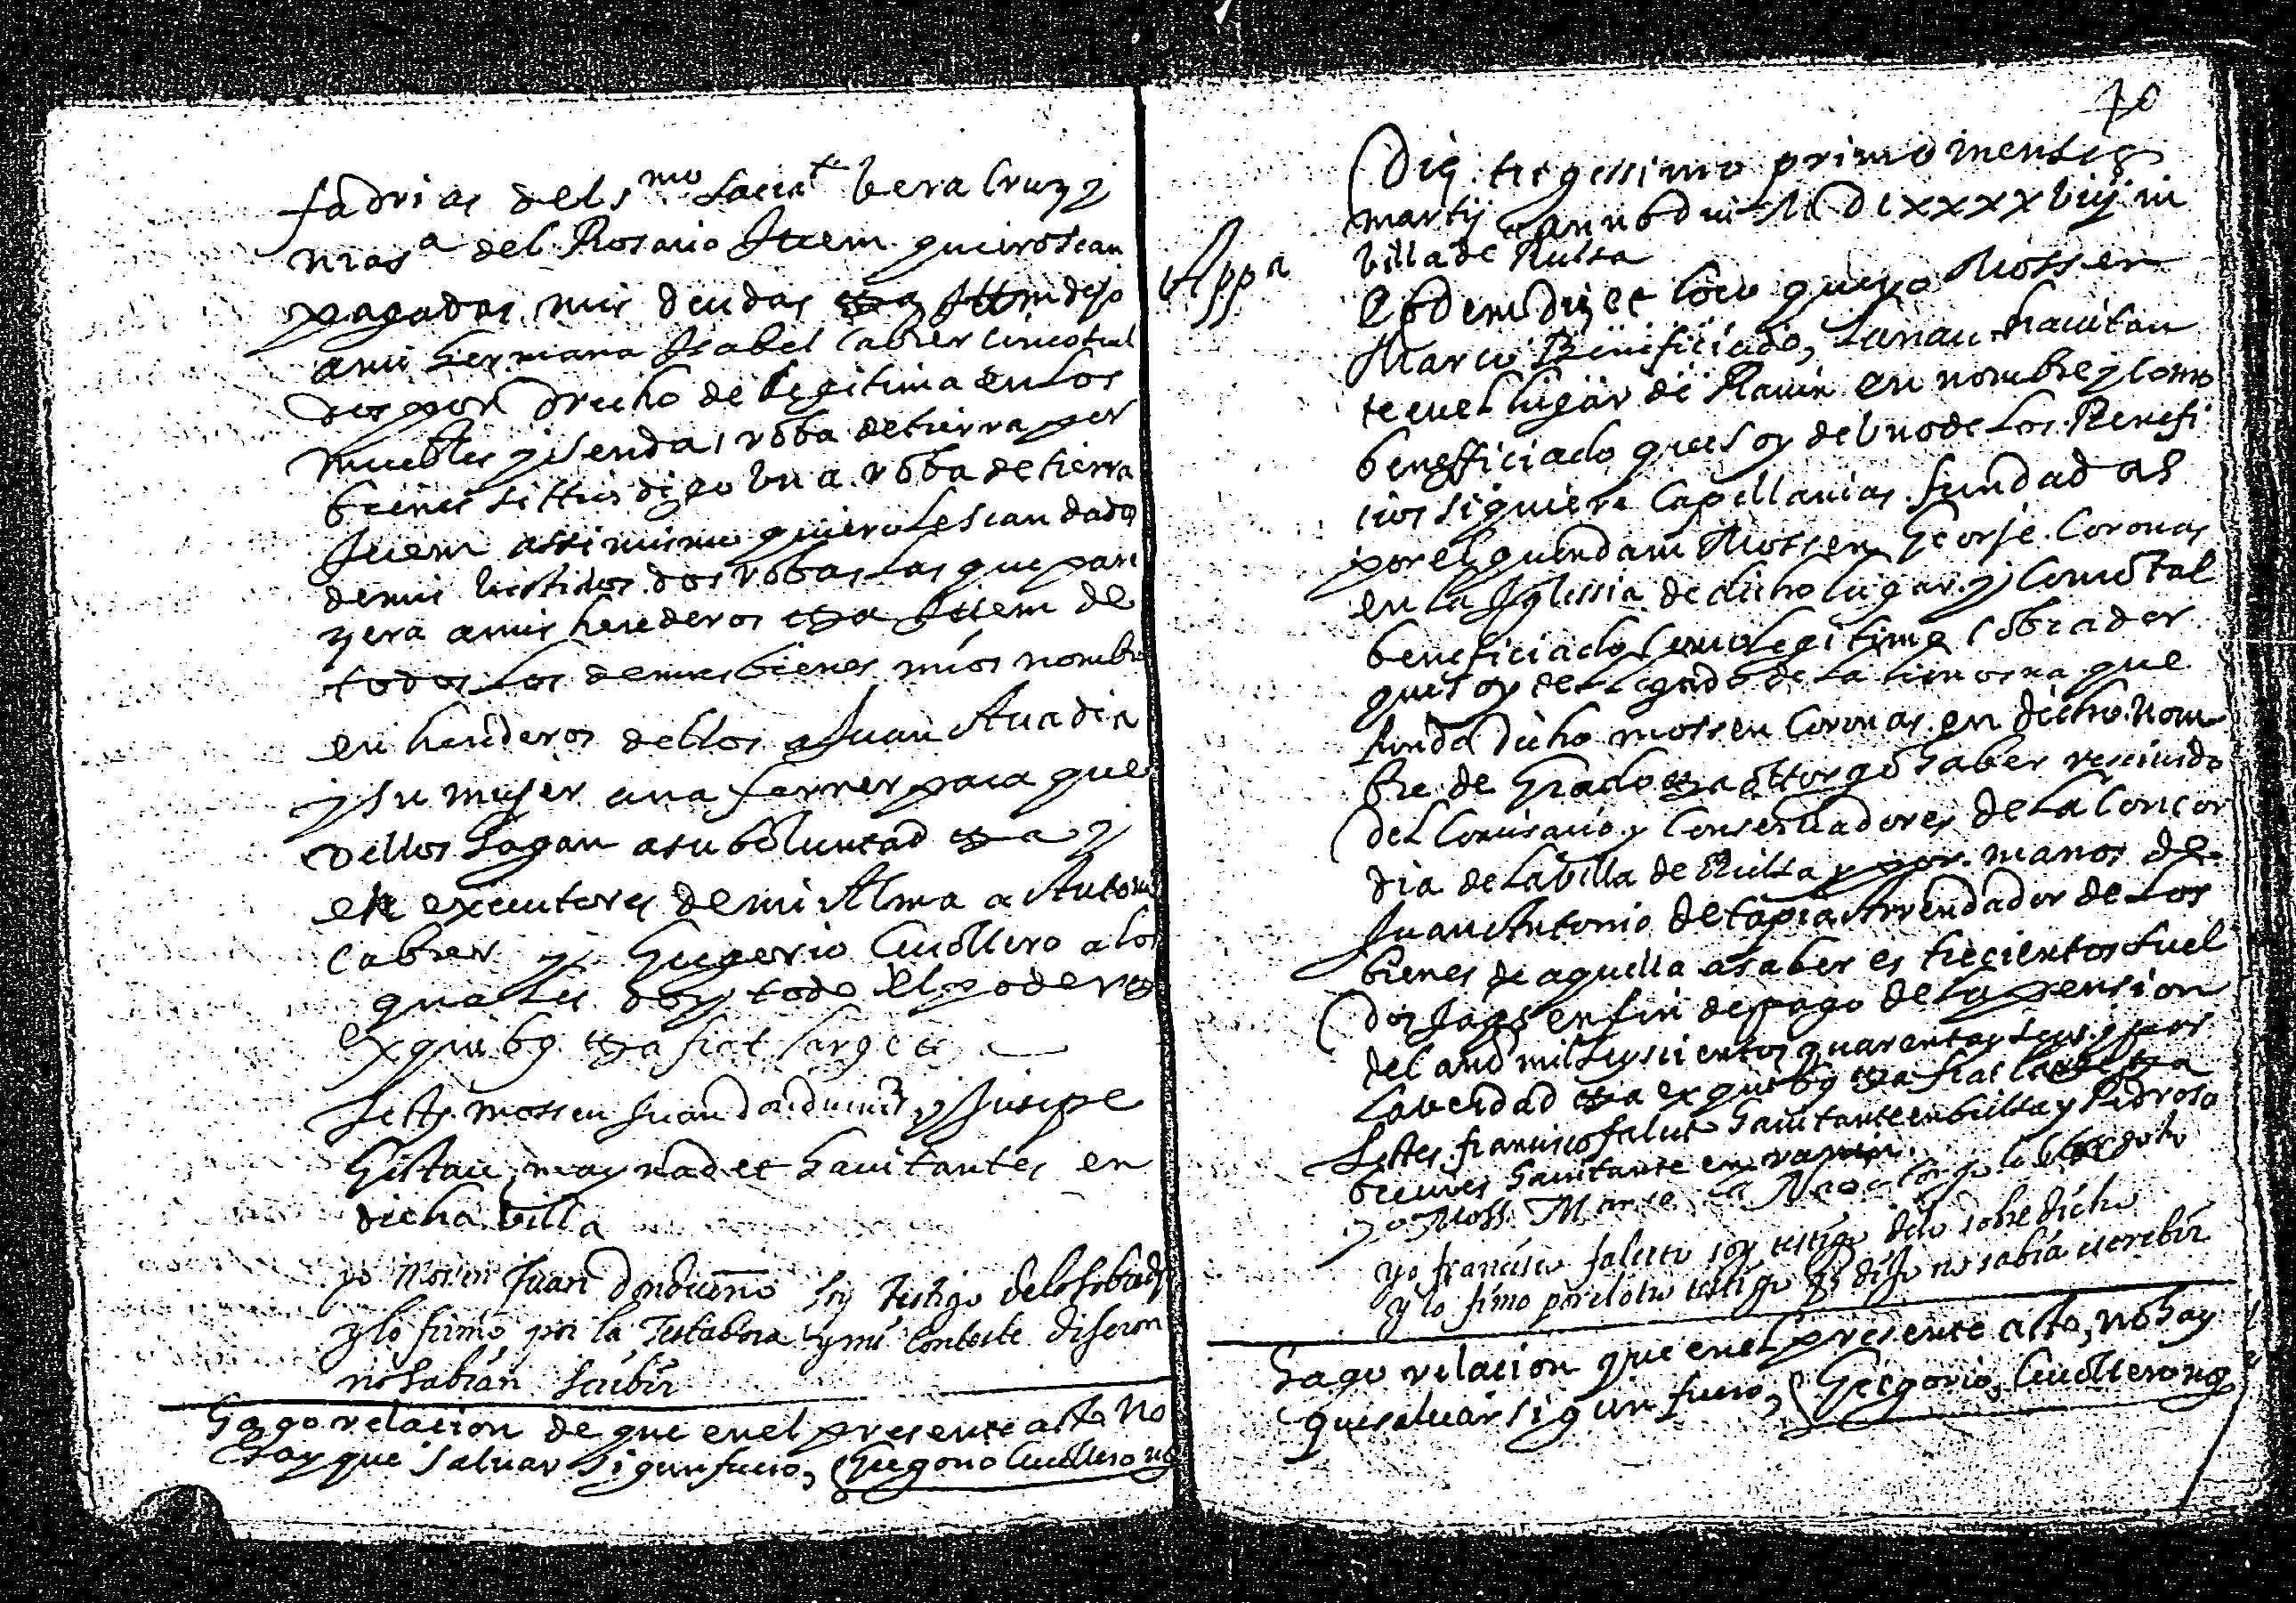 fadrias del s.mo sacra.to bera Cruz y
nra s.a del Rosario Ittem quiero sean
pagadas mis deudas etta Ittem dejo
a mi hermana Isabel Cabrer cinco suel
dos por drecho de legitima en los
muebles y senda roba de tierra por
bienes sittios digo una roba de tierra
Ittem assimismo quiero le sean dados
de mis bestidos dos robas las que pare
zera a mis herederos etta Ittem de
todos los demas bienes mios nombro
en herederos dellos a Juan Auadia
y su mujer ana ferrer para que
dellos hagan a su boluntad etta y
en executores de mi Alma a Antoni
Cabrer y Gregorio Cuollero a los
quales doy todo el poder
ex quibus etta fiat large etc
Testes mossen Juan Dondueño y Jusepe
Gistau may nadet hauitantes en
dicha billa
yo Mosen Juan Dondueño soy testigo de lo sobredi
y lo firmo por la Testadora y mi conteste dijeron
no sabian scribir
Hago relacion de que en el presente acto no
hay que saluar sigun fuero, Gregorio Cuollero no
70
Die trigessimo primo mensis
martij anno dni M DCxxxxviij in
billa de Rulsa
App.a
Eodem die et loco que yo Mossen
Marco Beneficiado, Lanau hauitan
te en el lugar de Rauin en nombre y como
benefficiado que soy del uno de los Benefi
cios siquiere Capellanias fundadas
por el quondam Mossen Gorje Coronas
en la Iglessia de dicho lugar y como tal
beneficiado y como legitimo cobrador
que soy del legado de la limosna que
fundo dicho mossen Coronas en dicho nom
bre de Grado etta ottorgo haber resciuido
del Comisario y Conseruadores de la Concor
dia de la billa de Rulsa y por manos de
Juan Antonio de tapia Arrendador de los
bienes de aquella a saber es trecientos suel
dos Jaqs en fin de pago de la pension
del año mil seyscientos quarenta y seys y por
la verdad etta ex quibus etta fiat large etta
Testes francisco falceto hauitante en bulsa y Pedro
hauitante en rauin
yo Moss Marco la Nao atorgo lo sobredicho
yo francisco falceto soy testigo de lo sobre dicho
y lo firmo por el otro testigo q dijo no sabia escribir
Hago relacion que en el presente acto, no hay
que saluar sigun fuero, Gregorio Cuollero no